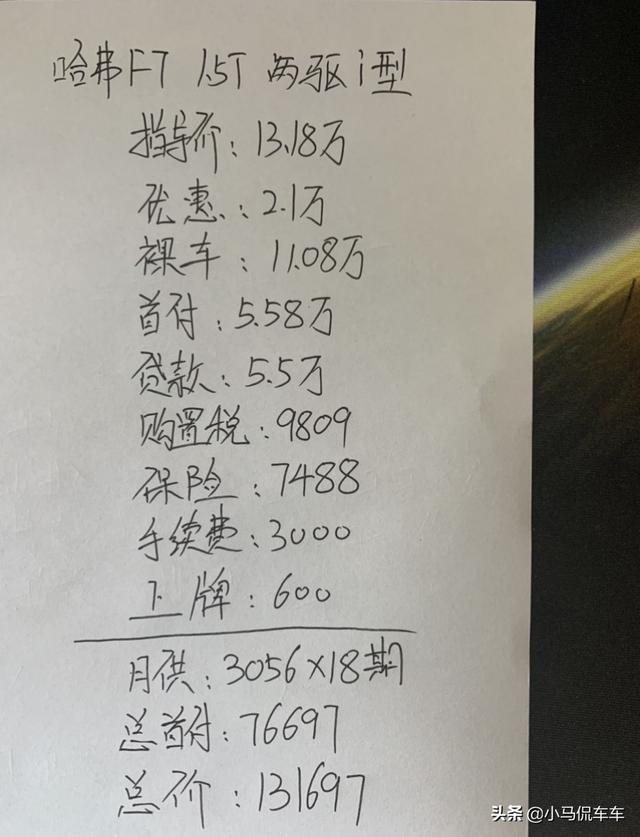 哈弗F7 1.5T 两驱i型
指导价：13.18万
优惠：2.1万
裸车：11.08万
首付：5.58万
贷款：5.5万
购置税：9809
保险：7488
手续费：3000
上牌：600
月供：3056×18期
总首付：76697
总价：131697
头条 @小马侃车车